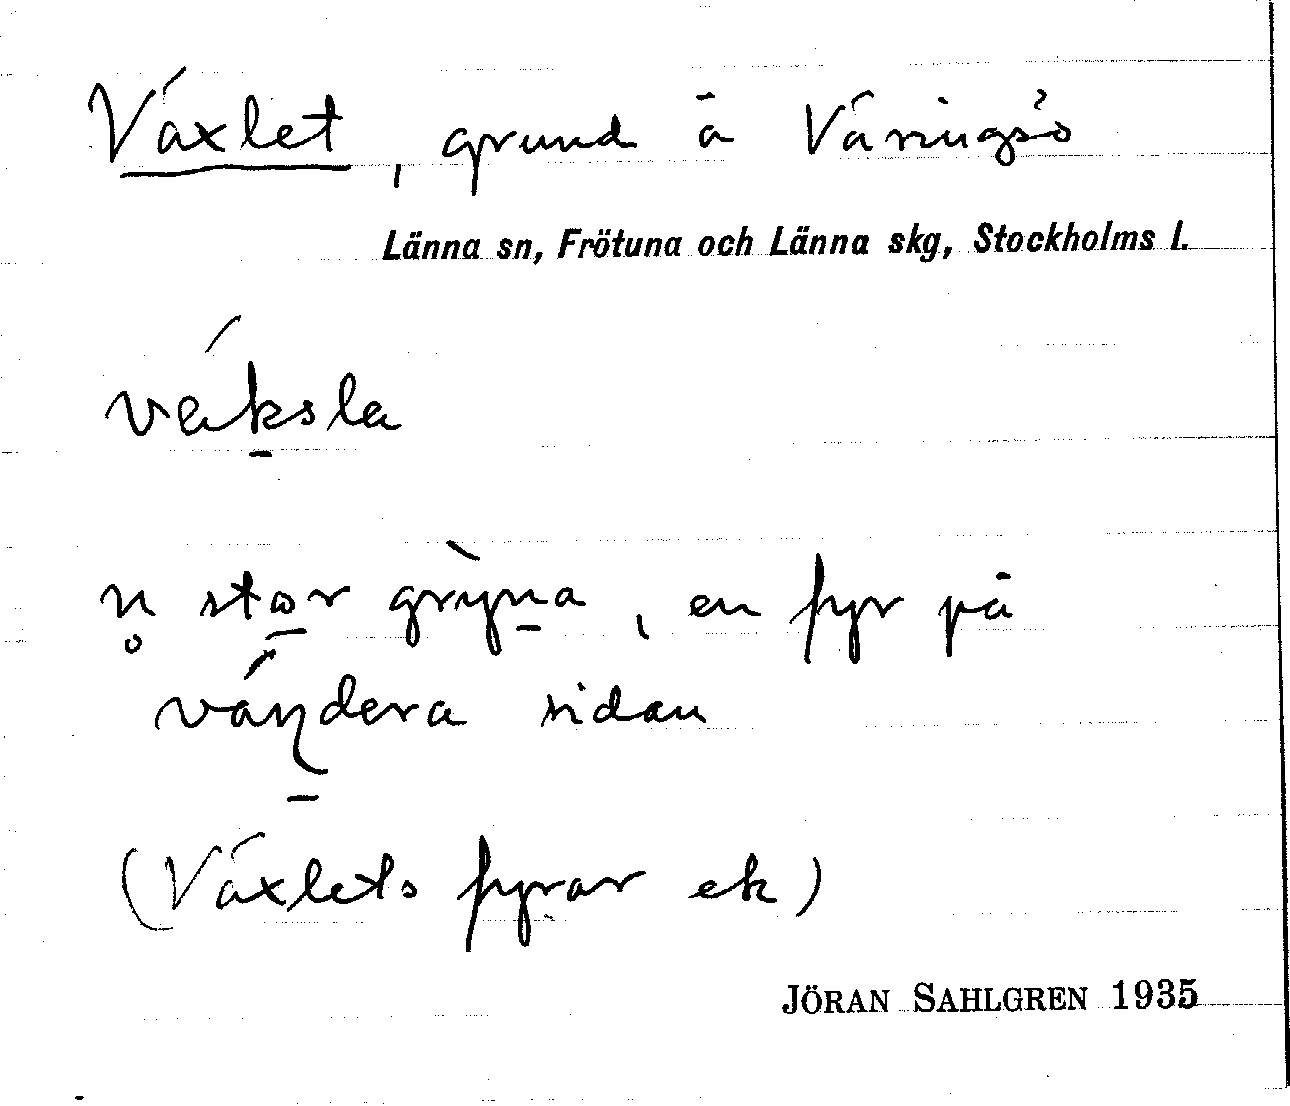 Växlet, grund å Väringsö
Länna sn, Frötuna och Länna skg, Stockholms l.
vä́ksla
n̥ stor grỳna, en fyr på
vándera sidan
(Växlets fyrar ek)
JÖRAN SAHLGREN 1935